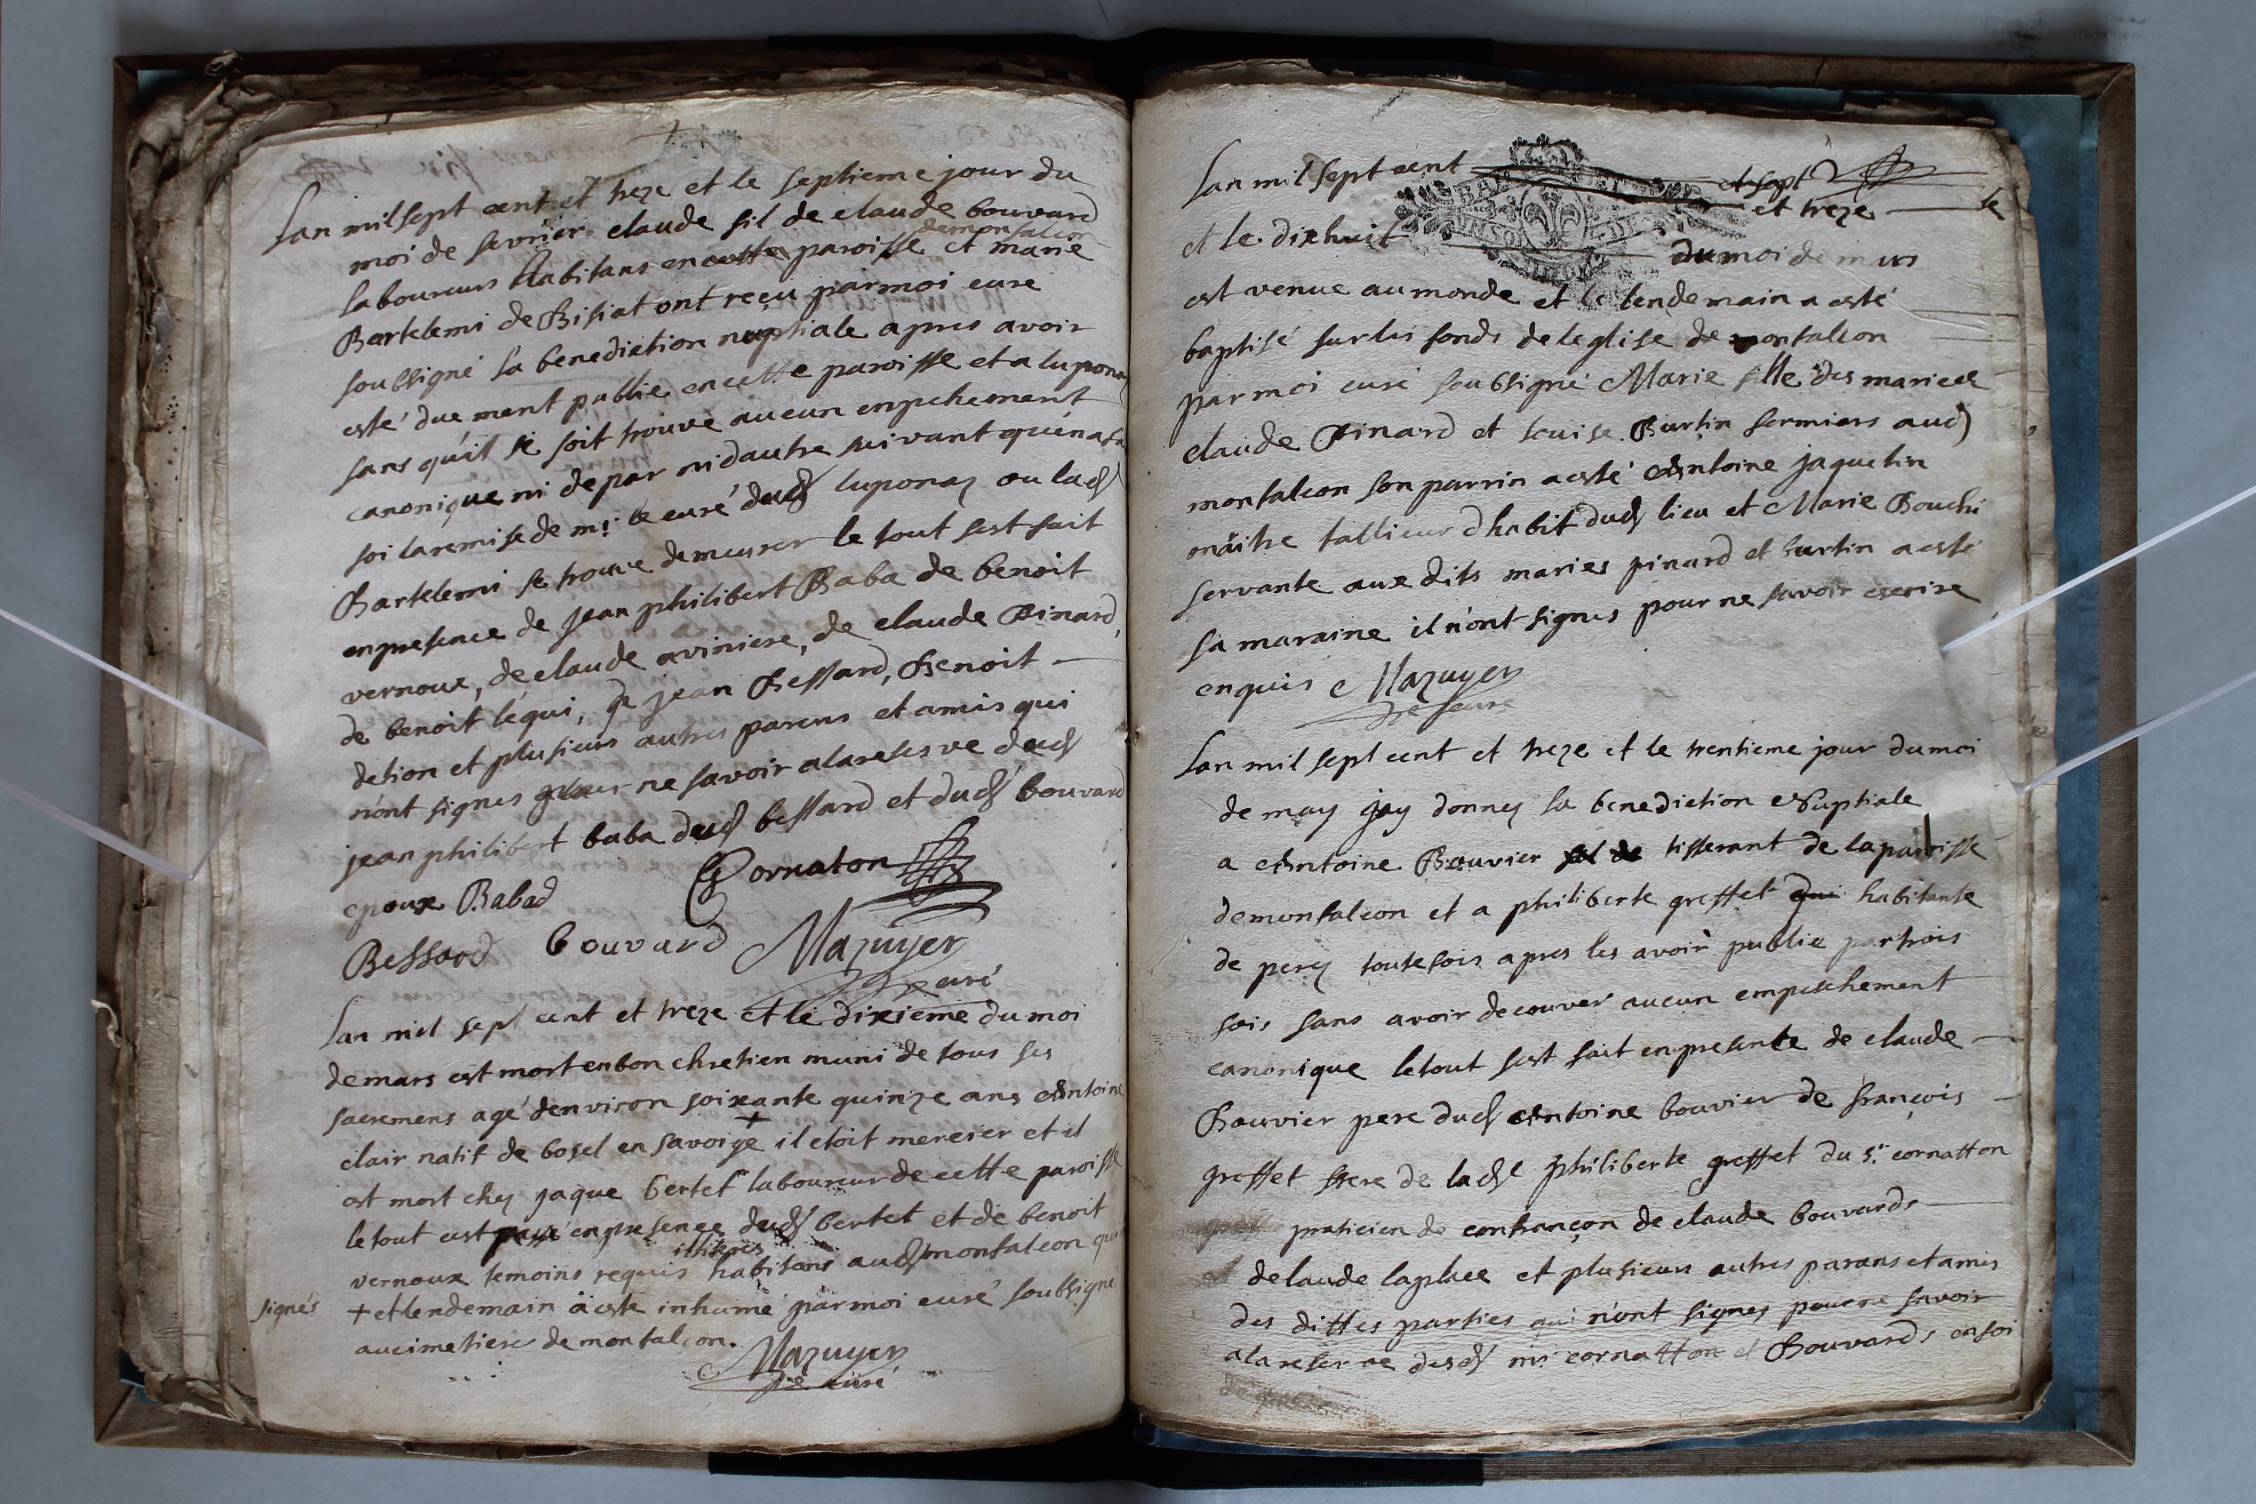 Lan mil sept cent et treze et le septieme jour du
moi de fevrier claude fil de claude bouvard
demonfalcon
laboureurs habitans en cette paroisse et marie
Bartelemi de Bisiat ont reçu par moi cure
soubsigné la benediction nuptiale apres avoir
esté duement publie en cette paroisse et a luponay
sans qu'il se soit trouve aucun enpchement
canonique ni de par ni dautre suivant quen a fa
foi la remise de mr le curé dud luponay ou lad
Bartelemi se trouve demeurer le tout sest fait
en presence de jean philibert Baba de benoit
vernoux, de claude aviniere, de claude Pinard,
de benoit lequi, de jean Bessard, Benoit
detion et plusieurs autres parens et amis qui
n'ont signes pour ne savoir a la reserve dud
jean philibert baba dud bessard et dud bouvard
epoux Babad Cornaton
Bessard bouvard Mazuyer
ptre curé
Lan mil sept cent et treze et le dixieme du moi
de mars est mort en bon chretien muni de tous ses
sacremens agé denviron soixante quinze ans Antoine
clair natif de bosel en savoiye + il etoit mercier et il
est mort chez jaque bertet laboureur de cette paroisse
le tout est passé en presence dud bertet et de benoit
illiteres
vernoux temoins requis habitans aud monfalcon qui
signés + et lendemain a este inhumé par moi curé soubsigné
au cimetiere de monfalcon.
Mazuyer
ptre curé
Lan mil sept cent et sept
et treze le
et le dixhuit du moi de mars
est venue au monde et le lendemain a esté
baptisé sur les fonds de leglise de monfalcon
par moi curé soubsigné Marie fille des maries
claude Pinard et louise Burtin fermiers aud
monfalcon son parrin a esté Antoine jaquetin
maitre tallieur dhabit dud lieu et Marie Bouchi
servante aux dits maries pinard et burtin a esté
sa maraine il n'ont signes pour ne savoir escrire
enquis Mazuyer
ptre cure
Lan mil sept cent et treze et le trentieme jour du moi
de may jay donney la benediction Nuptiale
a Antoine Bouvier fil de tisserant de la paroisse
de monfalcon et a philiberte greffet qui habitante
de perey toutefois apres les avoir publie par trois
fois sans avoir decouver aucun empeschement
canonique le tout sest fait en presente de claude
Bouvier pere dud Antoine bouvier de françois
greffet frere de lade philiberte greffet du sr cornatton
praticien de confrançon de claude bouvards
de laude laplace et plusieurs autres parans et amis
des dittes parties qui n'ont signes pour ne savoir
a la reserve desd mr cornatton et Bouvards en foi